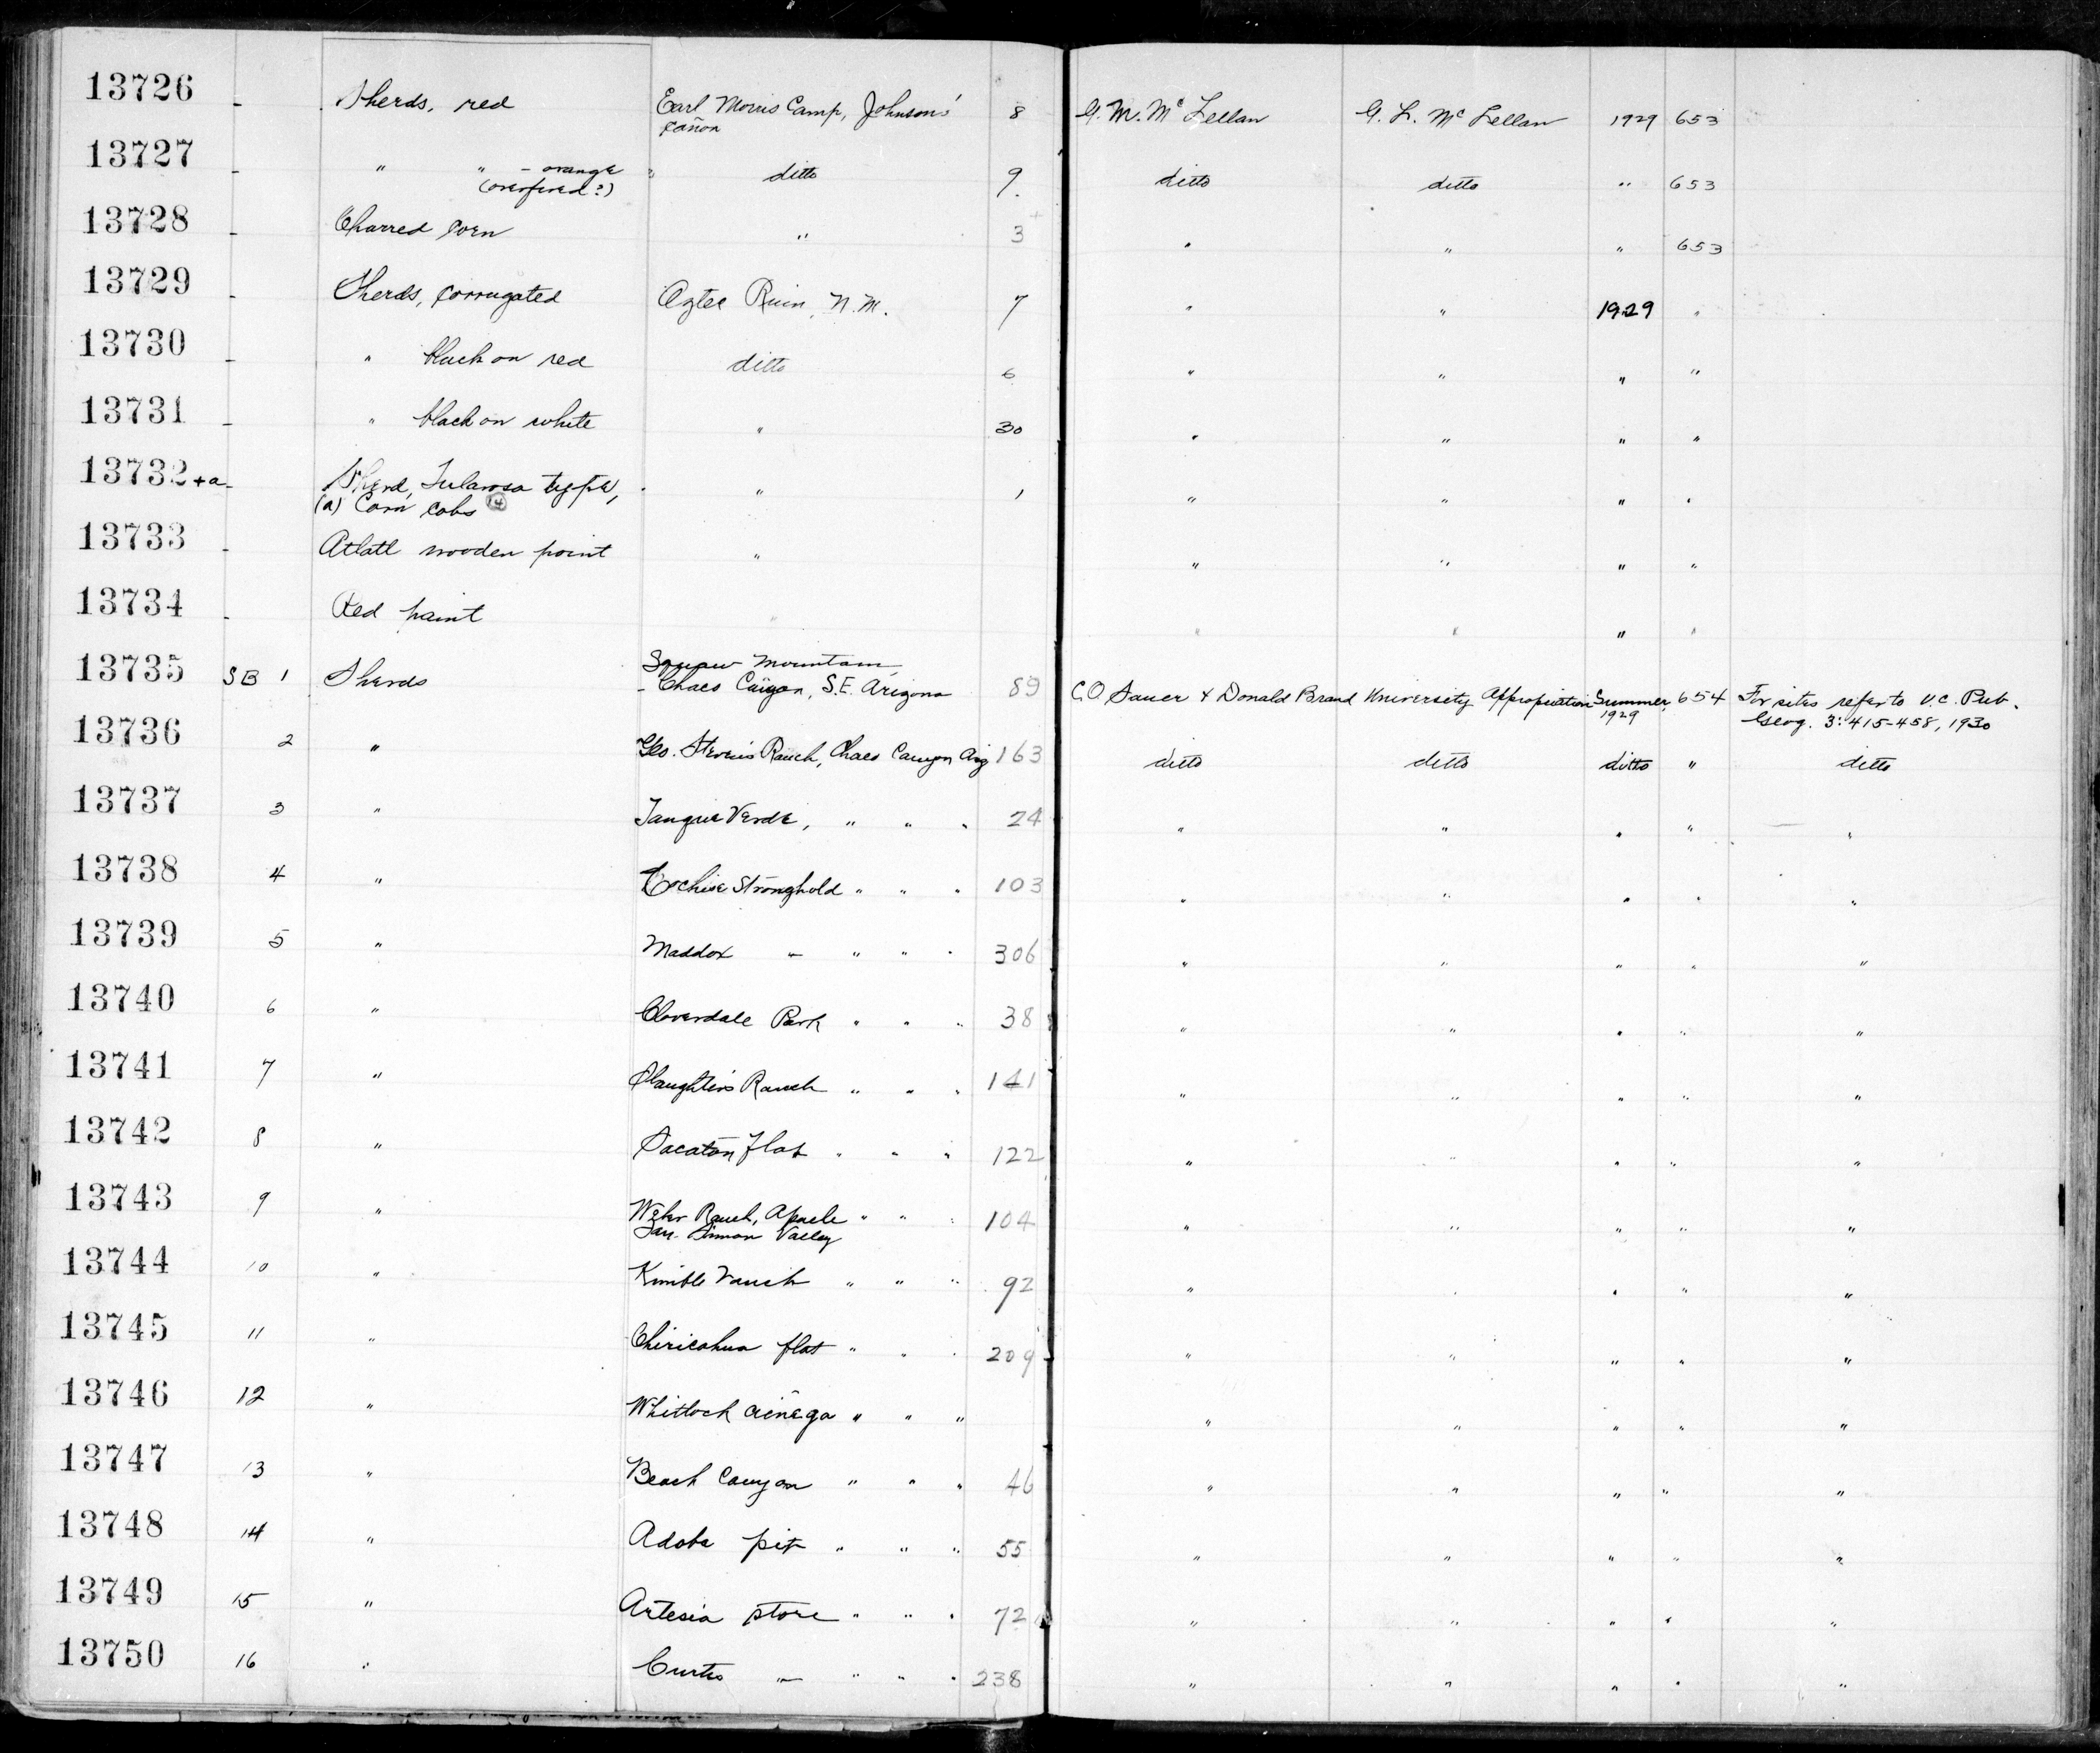 13726 - Sherds, red Earl Morris Camp, Johnson's 8 G. M. McLellan G. L. McLellan 1929 653
cañon
13727 - " " - orange " ditto 9. ditto ditto " 653
(overfired?)
13728 - Charred corn " 3 " " " 653
13729 - Sherds, corrugated Aztec Ruin, N.M. 7 " " 1929 "
13730 - " black on red ditto 6 " " " "
13731 - " black on white " 30 " " " "
13732+a - Sherd, Tularosa type, " 1 " " " "
(a) Corn cobs 14
13733 - Atlatl wooden point " " " " "
13734 - Red paint " " " " "
13735 SB 1 Sherds Squaw Mountain
- Chaes Cañyon, S.E. Arizona 89 C.O. Sauer & Donald Brand University Appropriation Summer 1929 654 For sites refer to U.C. Pub.
Geog. 3:415-458, 1930
13736 2 " Geo. Steven's Ranch, Chaes Canyon Ariz 163 ditto ditto ditto " ditto
13737 3 " Tanque Verde, " " " 24 " " " " "
13738 4 " Cochise Stronghold " " " 103 " " " " "
13739 5 " Maddox - " " " 306 " " " " "
13740 6 " Cloverdale Park " " " 38 " " " " "
13741 7 " Slaughter's Ranch " " " 141 " " " " "
13742 8 " Sacaton Flat " " " 122 " " " " "
13743 9 " Ranch, " " " 104 " " " " "
San Simon Valley
13744 10 " Kimble ranch " " " 92 " " " " "
13745 11 " Chiricahua flat " " " 209 " " " " "
13746 12 " Whitlock cienega " " " " " " " "
13747 13 " Beach Canyon " " " 46 " " " " "
13748 14 " Adobe pit " " " 55 " " " " "
13749 15 " Artesia store " " " 72 " " " " "
13750 16 " Curtis - " " " 238 " " " " "